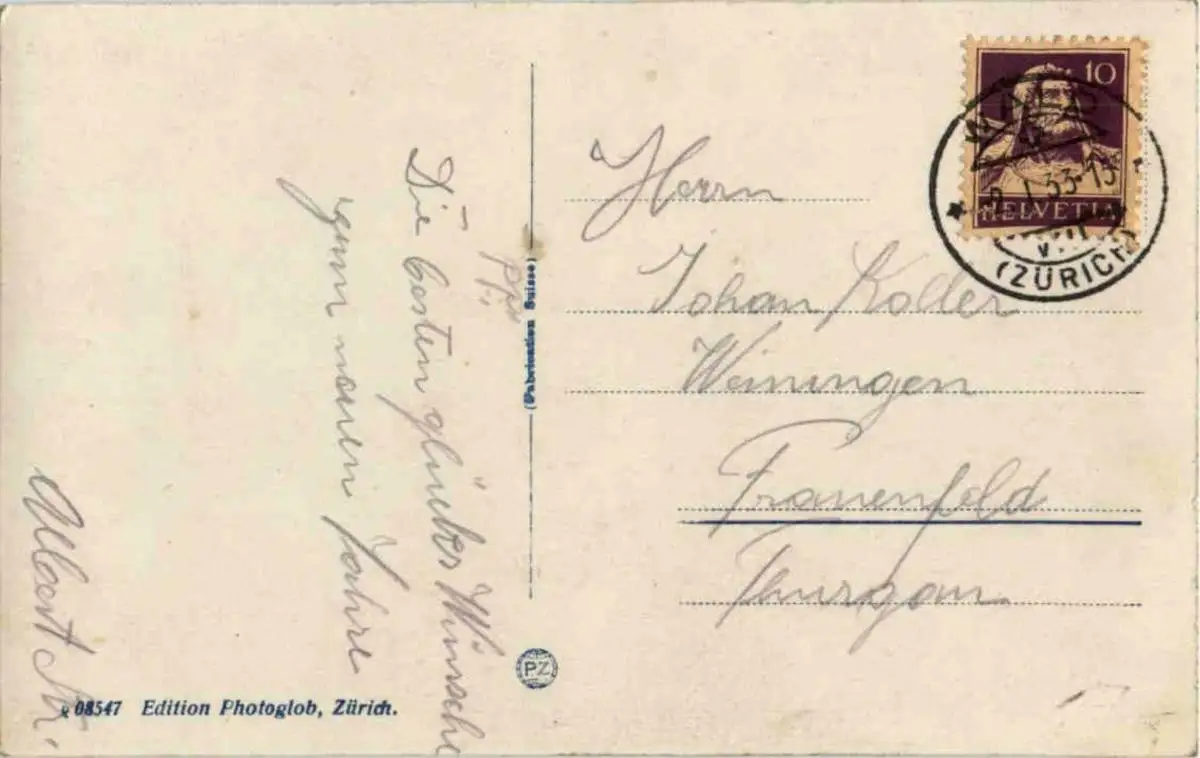 Die besten glückes Wünsche
zum neuen Jahre
Albert
Herrn
Johan Koller
Weiningen
Frauenfeld
Thurgau
10
HELVETIA
WALD
I.33-13
(ZÜRICH)
(Fabrication Suisse)
PZ
08547 Edition Photoglob, Zürich.